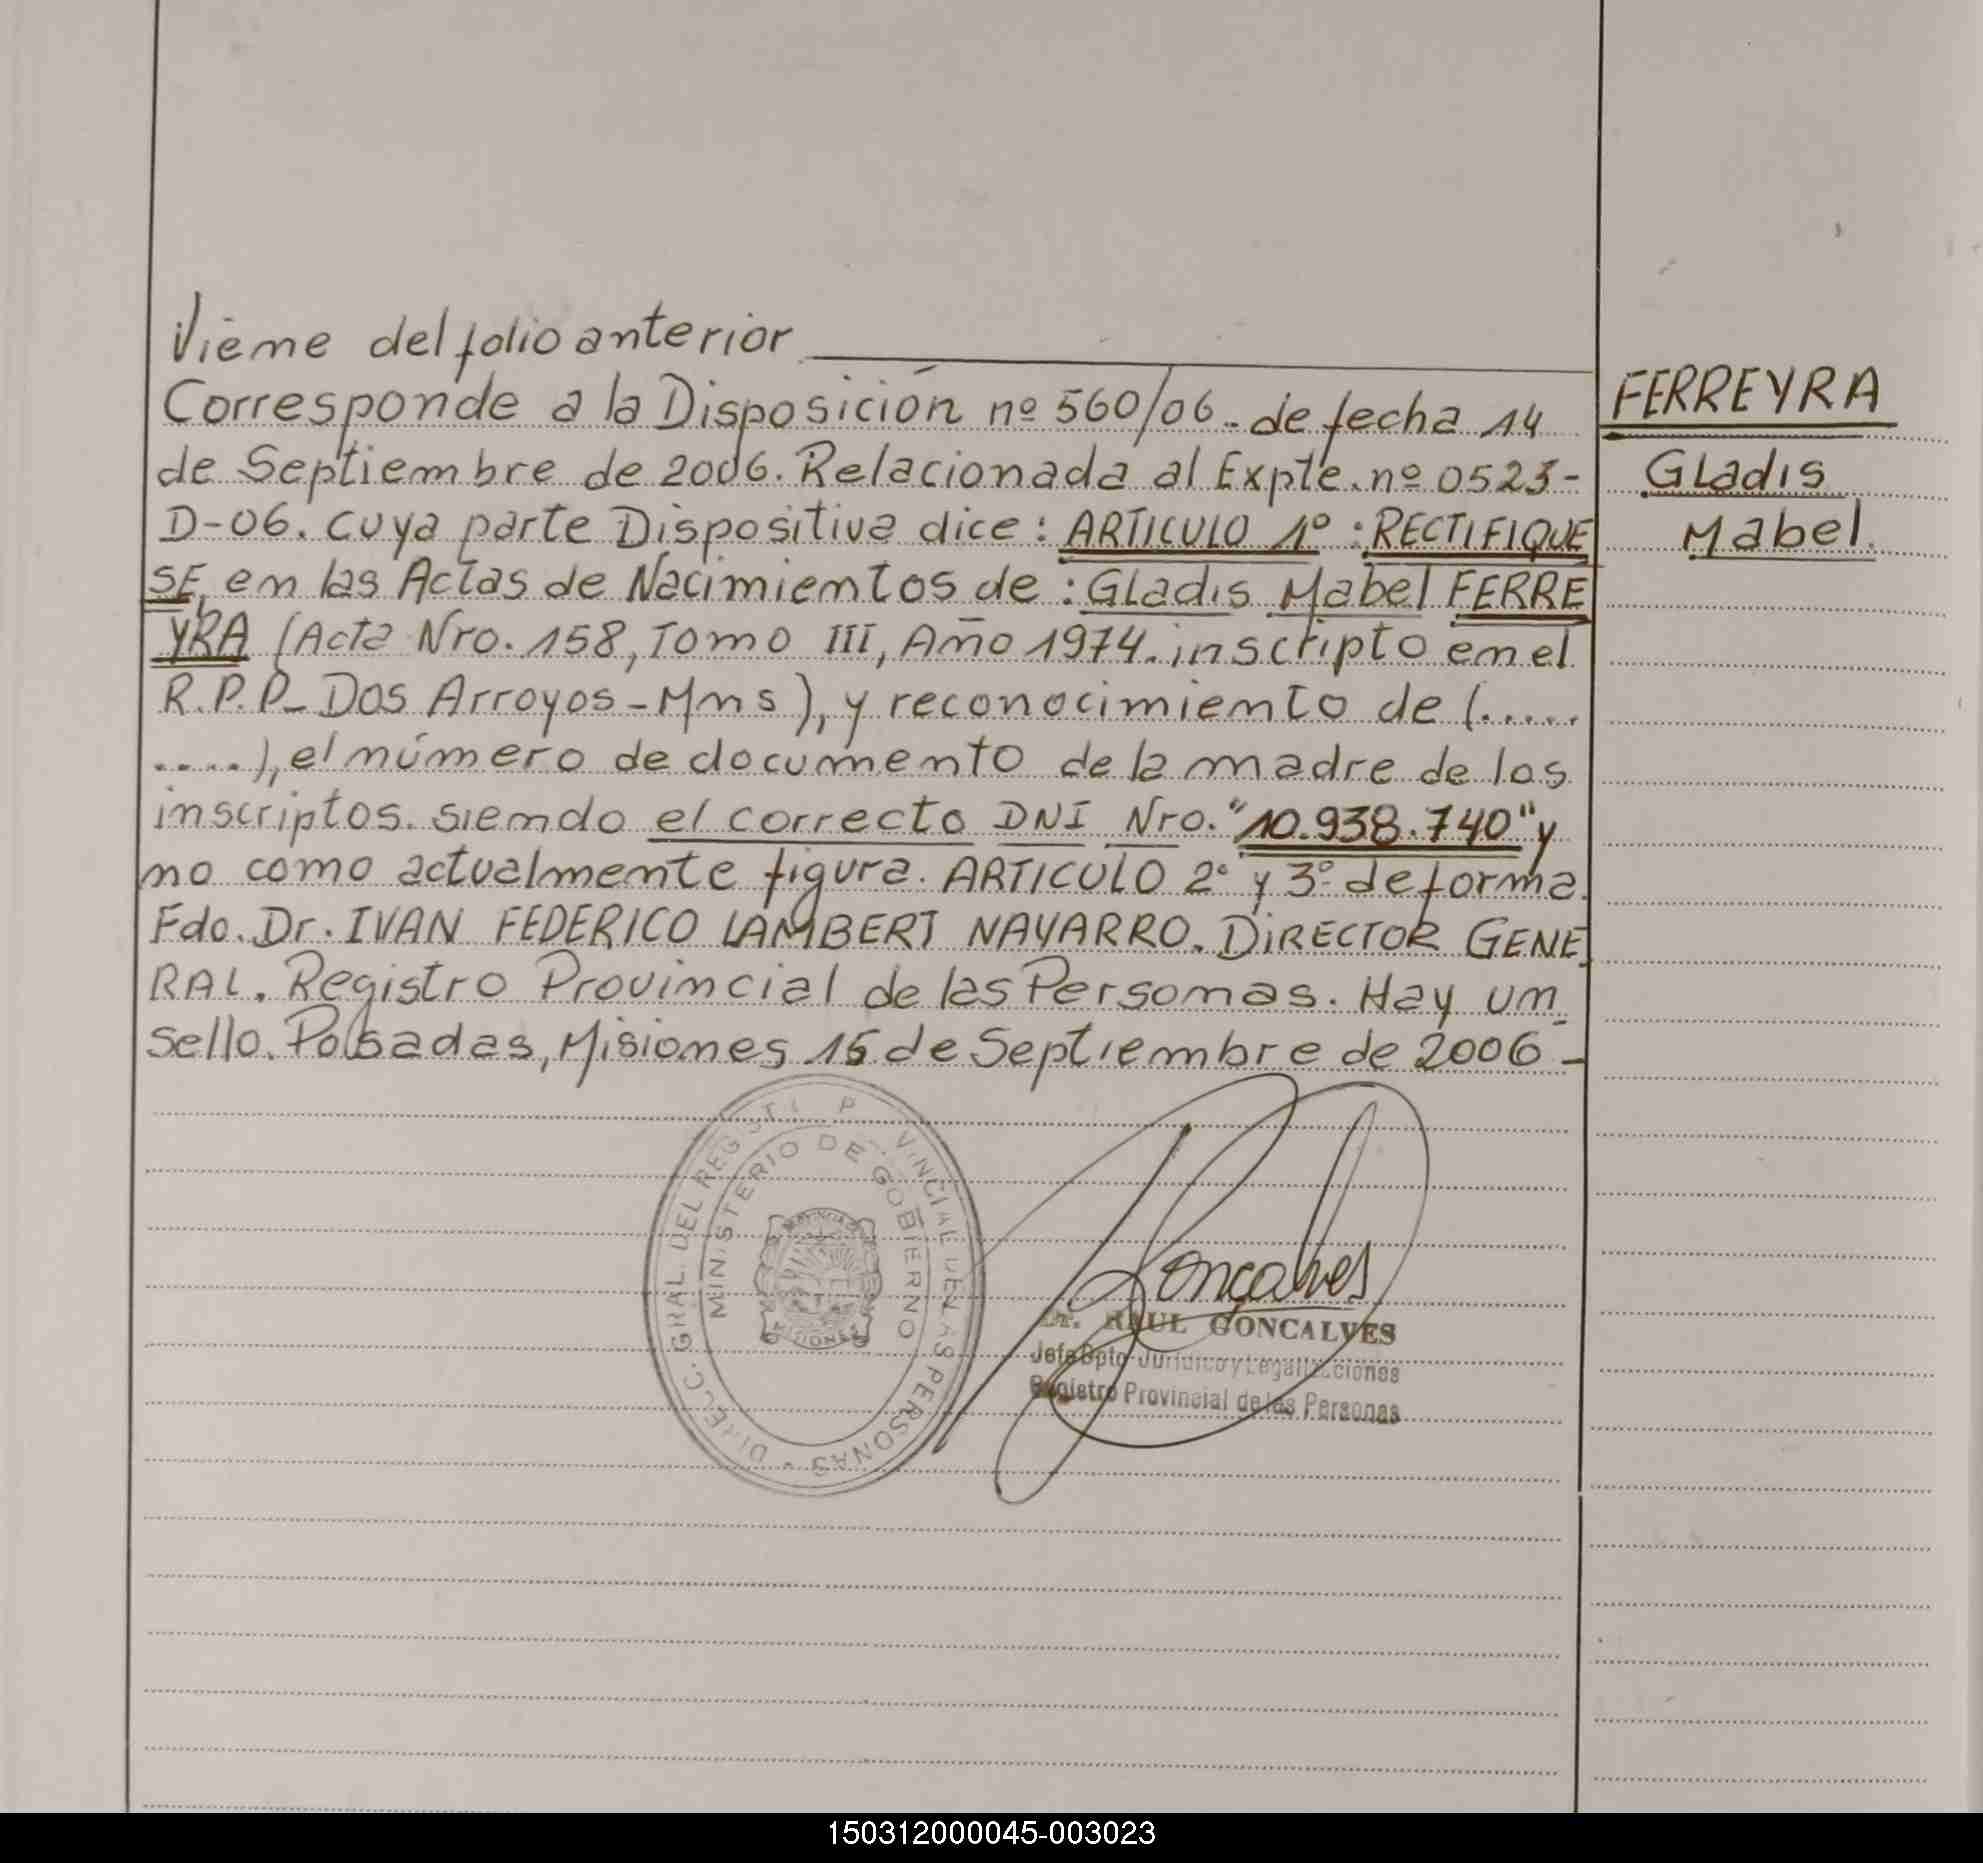 Viene del folio anterior
Corresponde a la Disposición nº 560/06. de fecha 14
de Septiembre de 2006. Relacionada al Expte. nº 0523-
D-06. cuya parte Dispositiva dice: ARTICULO 1º: RECTIFIQUE
SE, en las Actas de Nacimientos de: Gladis Mabel FERRE
YRA (Acta Nro. 158, Tomo III, Año 1974. inscripto en el
R.P.P- Dos Arroyos-Mns), y reconocimiento de (.....
.....), el número de documento de la madre de los
inscriptos. siendo el correcto DNI Nro. "10.938.740" y
no como actualmente figura. ARTICULO 2º y 3º de forma.
Fdo. Dr. IVAN FEDERICO LAMBERT NAVARRO. DIRECTOR GENE
RAL. Registro Provincial de las Personas. Hay un
sello. Posadas, Misiones 15 de Septiembre de 2006-
FERREYRA
Gladis
Mabel.
DIRECC. GRAL. DEL REGISTR PROVINCIAL DE LAS PERSONAS
MINISTERIO DE GOBIERNO
PROVINCIA DE
MISIONES
Goncalves
Dr. RAUL GONCALVES
Jefe Dpto Juridico y Legalizaciones
Registro Provincial de las Personas
150312000045-003023